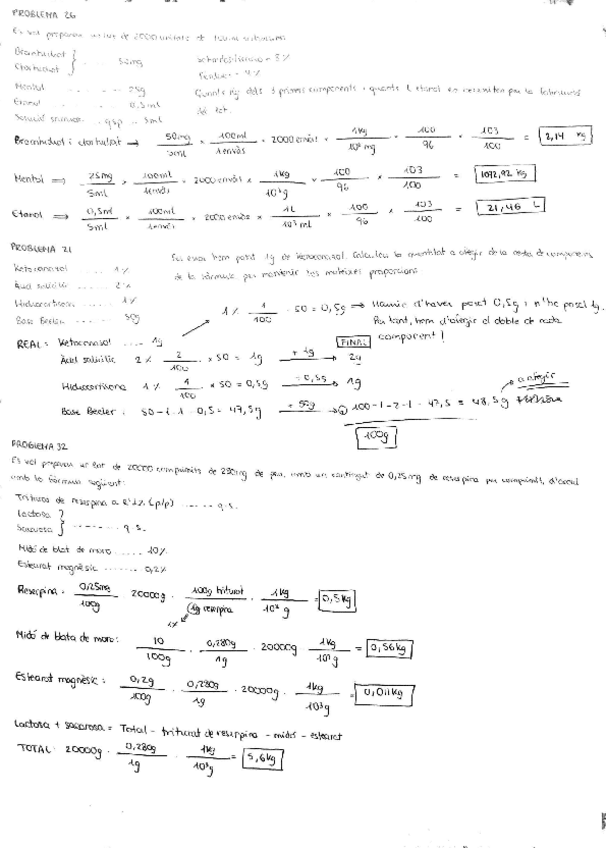 PROBLEMA 26
Es vol preparar un lot de 2000 unitats de 100ml
50mg
5%
Mentol ---- 25g
Etanol ---- 0,5ml
qsp - 5ml
Quants dels 3 primers components i quants L etanol es necessiten per la
del lot.
Bromhidrat i clorhidrat → 50mg/5ml × 100ml/1envàs × 2000 envàs × 1kg/10⁶ mg × 100/96 × 103/100 = 2,14 kg
Mentol ⇒ 25mg/5ml × 100ml/1envàs × 2000 envàs × 1kg/10³g × 100/96 × 103/100 = 1072,92 kg
Etanol ⇒ 0,5ml/5ml × 100ml/1envàs × 2000 envàs × 1L/10³ml × 100/96 × 103/100 = 21,46 L
PROBLEMA 21
hem posat 1g de Ketoconazol. Calculeu la quantitat a afegir de la resta de components
de la fórmula per mantenir les mateixes proporcions
Ketoconazol ..... 1%
Àcid salicílic ---- 2%
Hidrocortisona .... 1%
Base Beeler ..... 50g
1% 1/100 · 50 = 0,5g ⇒ Hauríe d'haver posat 0,5g i n'he posat 1g.
Per tant, hem d'afegir el doble de cada
component!
REAL: Ketoconazol .... 1g
FINAL
Àcid salicílic 2% 2/100 × 50 = 1g + 1g → 2g
Hidrocortisona 1% 1/100 × 50 = 0,5g + 0,5g → 1g
Base Beeler: 50 - 1 - 1 - 0,5 = 47,5g + 50g → 100-1-2-1-47,5 = 48,5g
a afegir
100g
PROBLEMA 32
Es vol preparar un lot de 20000 comprimits de 280mg de pes, amb un contingut de 0,25mg de reserpina per comprimit, d'acord
amb la fórmula següent:
Triturat de reserpina a l'1% (p/p) ------ q.s.
Lactosa
Sacarosa } ------- q.s.
Midó de blat de moro ..... 10%
Estearat magnèsic ....... 0,2%
Reserpina: 0,25mg/100g 20000g · 100g triturat/1g reserpina · 1kg/10⁶ g = 0,5kg
1%
Midó de blata de moro: 10/100g · 0,280g/1g · 20000g 1kg/10³g = 0,56kg
Estearat magnèsic: 0,2g/100g · 0,280g/1g · 20000g · 1kg/10³g = 0,011kg
Lactosa + sacarosa = Total - triturat de reserpina - midó - estearat
TOTAL: 20000g · 0,280g/1g · 1kg/10³g = 5,6kg